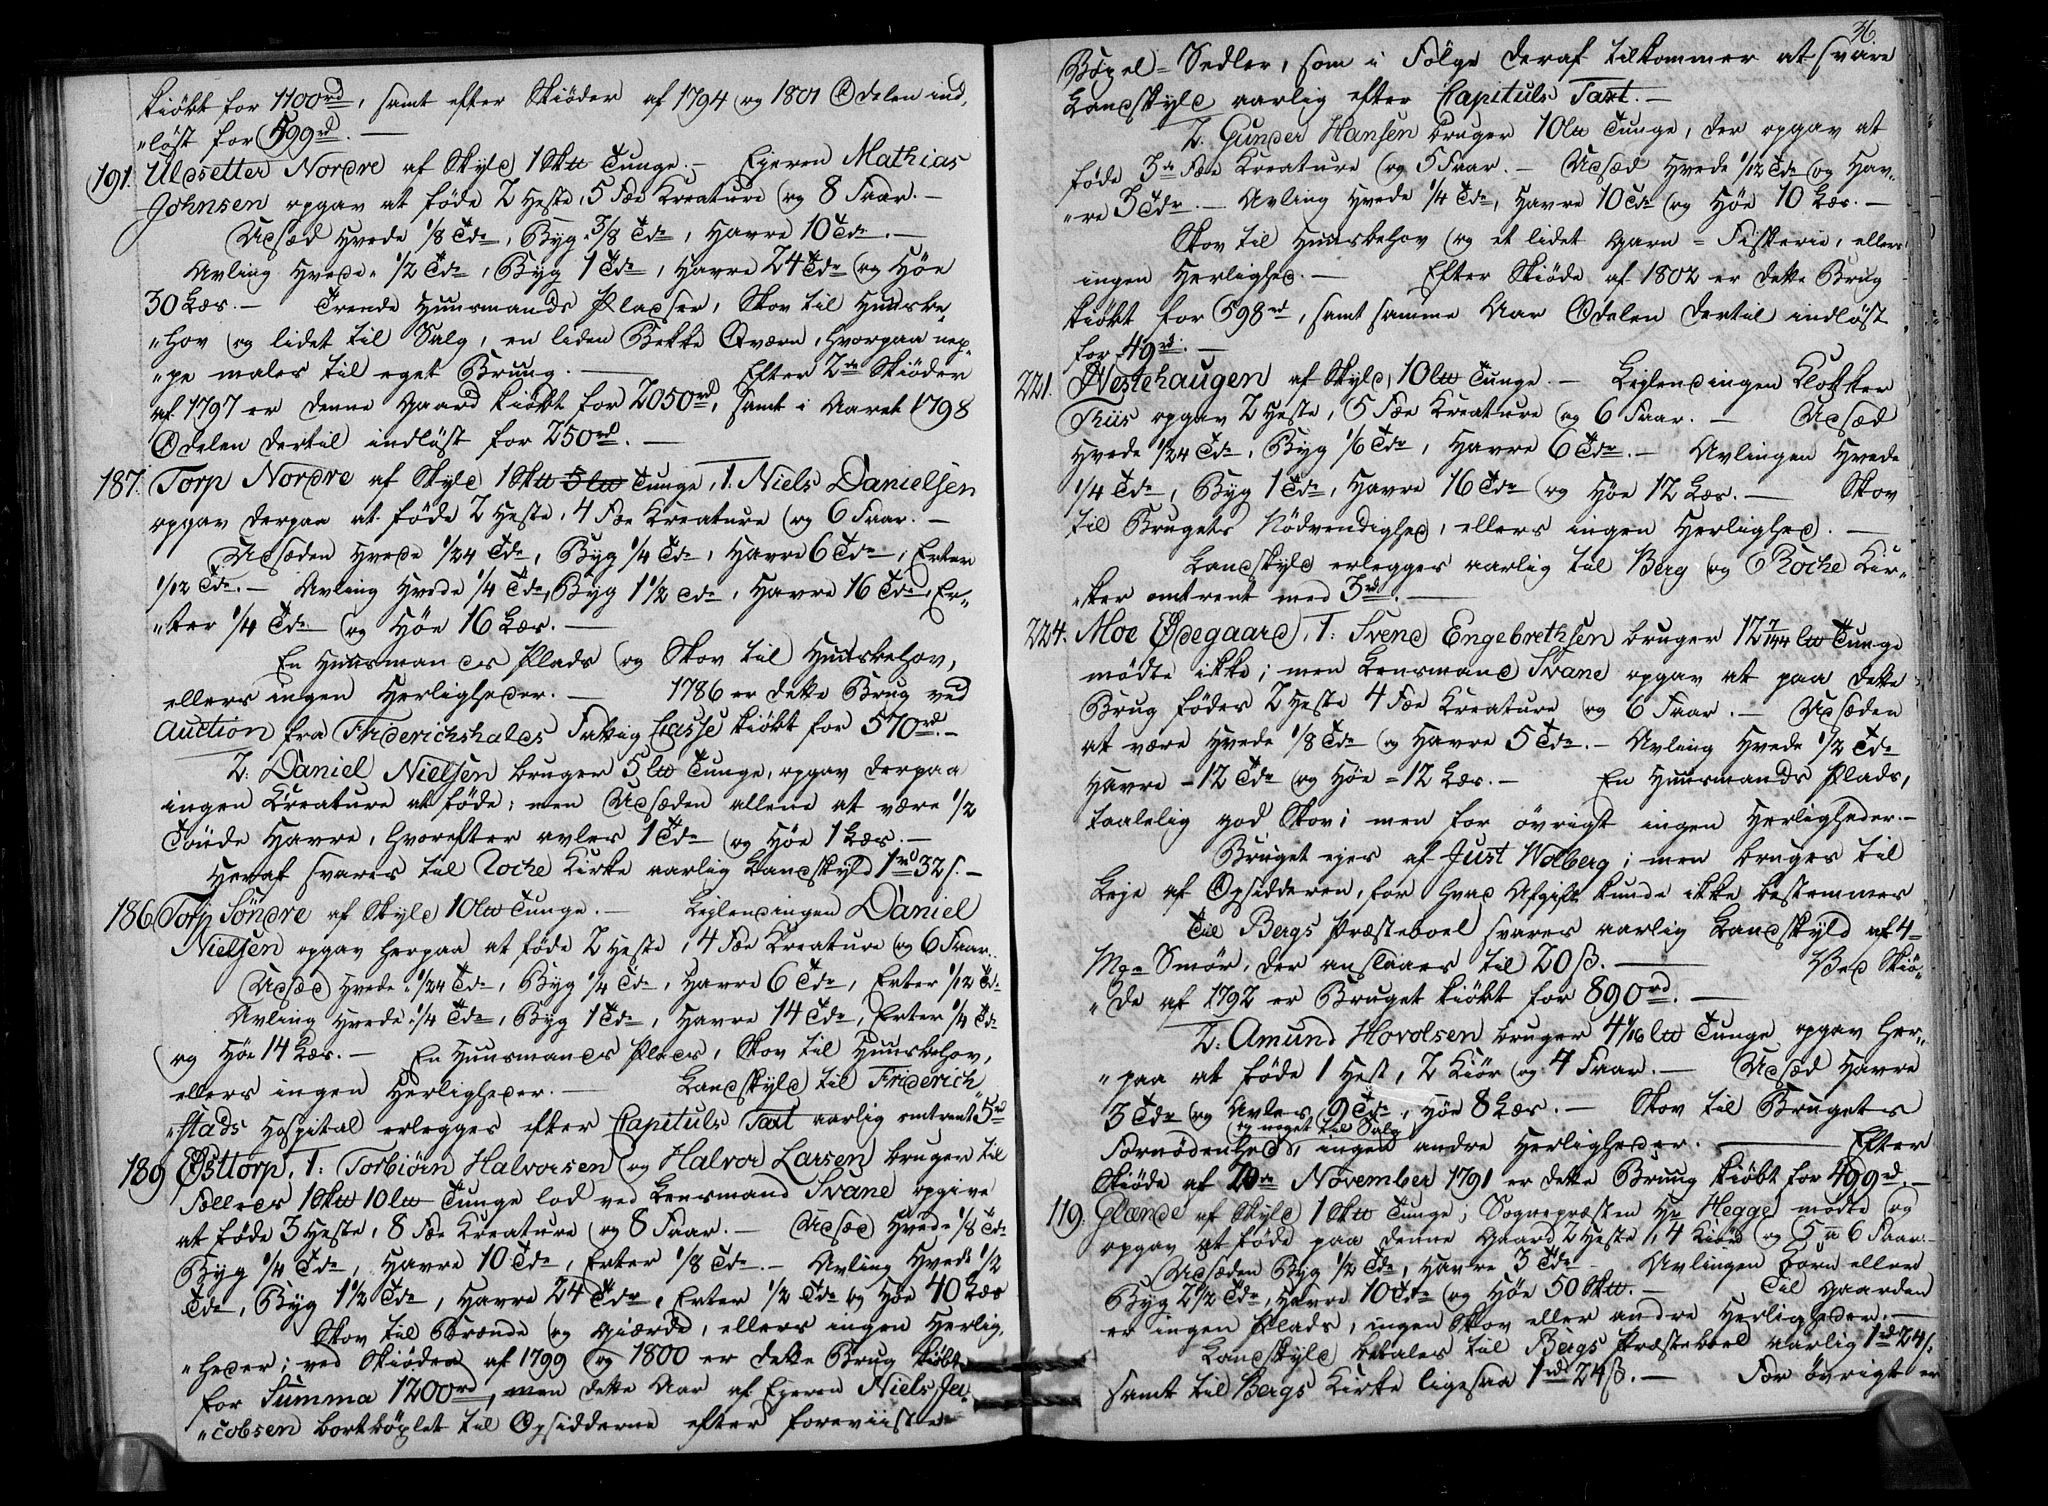 kiöbt for 1100rd, samt efter Skiöder af 1794 og 1801 Odelen ind,
"löst for 599rd. —
191. Ulvsetter Nordre af Skyld 1 Skw Tunge. — Ejeren Mathias
Johnsen opgav at föde 2 Heste, 5 Fæe Kreature og 8 Faar. —
Udsæd Hvede 1/8 Tde, Byg 3/8 Tde, Havre 10 Tde. —
Avling Hvede 1/2 Tde, Byg 1 Tde, Havre 24 Tde og Höe
30 Læs. — Trende Huusmands Pladser, Skov til Huusbe,
"hov og lidet til Salg, en liden Bekke Qværn, hvorpaa nep,
"pe males til eget Brung. — Efter 2de Skiöder
af 1797 er denne Gaard kiöbt for 2050rd, samt i Aaret 1798
Odelen dertil indlöst for 250rd. —
187. Torp Nordre af Skyld 1 Skw 5 lw Tunge, 1. Niels Danielsen
opgav derpaa at föde 2 Heste, 4 Fæe Kreature og 6 Faar. —
Udsæden Hvede 1/24 Tde, Byg 1/4 Tde, Havre 6 Tde, Erter
1/12 Tde. — Avling Hvede 1/4 Tde, Byg 1 1/2 Tde, Havre 16 Tde, Er-
"ter 1/4 Tde og Höe 16 Læs. —
En Huusmandes Plads og Skov til Huusbehov,
ellers ingen Herligheder. — 1786 er dette Brug ved
Auction fra Friderichshalds Fattig Casse kiöbt for 570rd. —
2: Daniel Nielsen bruger 5 lw Tunge, opgav derpaa
ingen Kreature at föde; men Udsæden allene at være 1/2
Tönde Havre, hvorefter avles 1 Tde og Höe 1 Læs. —
Heraf svares til Rocke Kirke aarlig Landskyld 1rd 32 s. —
186 Torp Söndre af Skyld 10 lw Tunge. — Lejlendingen Daniel
Nielsen opgav herpaa at föde 2 Heste, 4 Fæe Kreature og 6 Faar.
Udsæd Hvede 1/24 Tde, Byg 1/4 Tde, Havre 6 Tde, Erter 1/12 Td.
Avling Hvede 1/4 Tde, Byg 1 Tde, Havre 14 Tde, Erter 1/4 Tde
og Höe 14 Læs. — En Huusmandes Plads, Skov til Huusbehov,
ellers ingen Herligheder. — Landskyld til Friderich
"stads Hospital erlegges efter Capituls Taxt aarlig omtrent 5rd
189 Östtorp, 1: Torbiörn Halvorsen og Halvor Larsen bruger til
Fælleds 1 Skw 10 lw Tunge lod ved Lensmand Svane opgive
at föde 3 Heste, 8 Fæe Kreature og 8 Faar. — Udsæd Hvede 1/8 Tde
Byg 1/4 Tde, Havre 10 Tde, Erter 1/8 Tde. — Avling Hvede 1/2
Tde, Byg 1 1/2 Tde, Havre 24 Tde, Erter 1/2 Tde og Höe 40 Læs
Skov til Brænde og Giærde, ellers ingen Herlig,
"heder; ved Skiöder af 1799 og 1800 er dette Brug kiöbt
for Summa 1200rd, men dette Aar af Ejeren Niels Ja,
"cobsen bortböxlet til Opsidderne efter foreviiste
36.
Böxel = Sedler, som i Fölge deraf tilkommer at svare
Landskyld aarlig efter Capituls Taxt. —
2. Gunder Hansen bruger 10 lw Tunge, der opgav at
föde 3de Fæe Kreature og 5 Faar. — Udsæd Hvede 1/12 Tde og Hav-
"re 3 Tdr. — Avling Hvede 1/4 Tde, Havre 10 Tde og Höe 10 Læs. —
Skov til Huusbehov og et lidet Garn = Fiskerie, ellers
ingen Herlighed. — Efter Skiöde af 1802 er dette Brug
kiöbt for 598rd, samt samme Aar Odelen dertil indlöst
for 49rd. —
221. Nestehaugen af Skyld 10 lw Tunge. — Lejlendingen Klokker
Riis opgav 2 Heste, 5 Fæe Kreature og 6 Faar. — Udsæd
Hvede 1/24 Tde, Byg 1/6 Tdr, Havre 6 Tdr. — Avlingen Hvede
1/4 Tde, Byg 1 Tde, Havre 16 Tde og Höe 12 Læs. — Skov
til Brugets Nödvendighed, ellers ingen Herlighed. —
Landskyld erlegges aarlig til Berg og Rocke Kir-
"ker omtrent med 3rd. —
224. Moe Ödegaard, 1: Svend Engebrethsen bruger 12 7/144 lw Tunge
mödte ikke; men Lensmand Svane opgav at paa dette
Brug födes 2 Heste 4 Fæe Kreature og 6 Faar. — Udsæden
at være Hvede 1/8 Tde og Havre 5 Tde. — Avling Hvede 1/2 Tde
Havre = 12 Tde og Höe = 12 Læs. — En Huusmands Plads,
taalelig god Skov; men for övrigt ingen Herligheder. —
Bruget ejes af Just Wolberg; men bruges til
Leje af Opsidderen, for hvad Afgift kunde ikke bestemmes
Til Bergs Præsteboel svares aarlig Landskyld af 4
Mg Smör, der anslaaes til 20 ß. — Ved Skiö-
"de af 1792 er Bruget kiöbt for 890rd. —
2. Amund Hovolsen bruger 4 1/16 lw Tunge opgav her-
"paa at föde 1 Hest, 2 Kiör og 4 Faar. — Udsæd Havre
3 Tde og Avles 9 Tde, Höe 8 Læs. — Skov til Brugets
og noget til Salg
Fornödenhed, ingen andre Herligheder. — Efter
Skiöde af November 1791 er dette Brung kiöbt for 499rd. —
119. Glænde af Skyld 1 Skw Tunge; Sognepræsten Hr Hegge mödte og
opgav at föde paa denne Gaard 2 Heste, 4 Kiör og 5 a 6 Faar. —
Udsæden Byg 1/2 Tde, Havre 3 Tde Avlingen Korn eller
Byg 2 1/2 Tde, Havre 10 Tde og Höe 50 Skw. — Til Gaarden
er ingen Plads, ingen Skov eller andre Herligheder. —
Landskyld betales til Bergs Præsteboel aarlig 1rd 24 s.
samt til Bergs Kirke ligesaa 1rd 24 ß. — For övrigt er